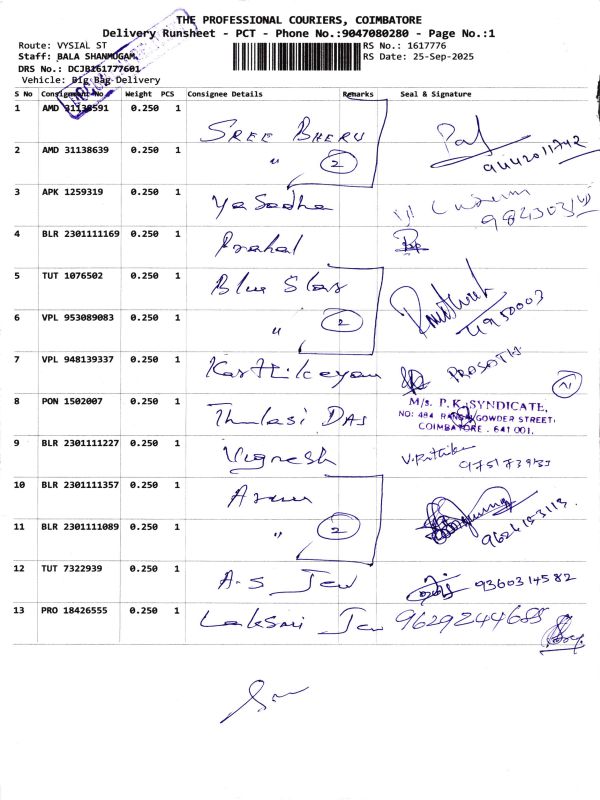 THE PROFESSIONAL COURIERS, COIMBATORE
Delivery Runsheet - PCT - Phone No.:9047080280 - Page No.:1
Route: VYSIAL ST
RS No.: 1617776
Staff: BALA SHANMUGAM
RS Date: 25-Sep-2025
DRS No.: DCJB161777601
Vehicle: Big Bag Delivery
S No Consignment No. Weight PCS Consignee Details Remarks Seal & Signature
1 AMD 31138591 0.250 1 SREE BHERU
2 AMD 31138639 0.250 1 " 2 9442011742
3 APK 1259319 0.250 1 Yasodha
4 BLR 2301111169 0.250 1 Prahal
5 TUT 1076502 0.250 1 Blue Star
6 VPL 953089083 0.250 1 " 2
7 VPL 948139337 0.250 1 Karthikeyan PRASATH
8 PON 1502007 0.250 1 Thulasi DAS
M/s. P.K. SYNDICATE,
NO: 484 RANGAI GOWDER STREET,
COIMBATORE - 641 001.
9 BLR 2301111227 0.250 1 Vignesh
10 BLR 2301111357 0.250 1 Arun
11 BLR 2301111089 0.250 1 " 2
12 TUT 7322939 0.250 1 A-S Jew 9360314582
13 PRO 18426555 0.250 1 Laksmi Jew 9629244688